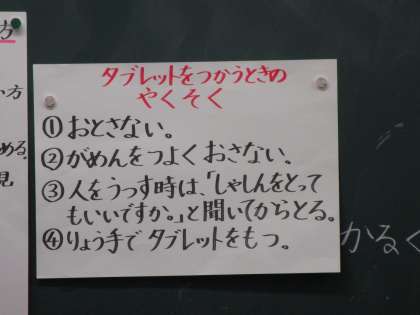 方
い方
める。
見
タブレットをつかうときの
やくそく
①おとさない。
②がめんをつよくおさない。
③人をうつす時は、「しゃしんをとって
もいいですか。」と聞いてからとる。
④りょう手でタブレットをもつ。
かるく